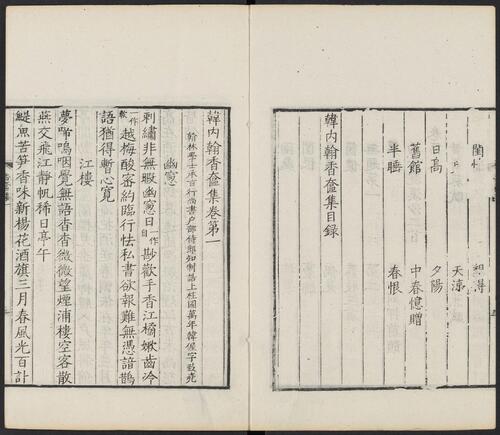 想得
天涼
日高 夕陽
舊館 中春憶贈
半睡 春恨
韓内翰香奩集目録
韓内翰香奩集卷第一
翰林學士承旨行尚書户部侍郎知制誥上柱國萬年韓偓字致堯
幽窻
刺繡非無暇幽窻日一作自尠歡手香江橘嫩齒冷
一作軟越梅酸密約臨行怯私書欲報難無憑諳鵲
語猶得暫心寛
江樓
夢啼嗚咽覺無語杳杳微微望煙浦樓空客散
燕交飛江靜帆稀日亭午
鯷魚苦笋香味新楊花酒旗三月春風光百計